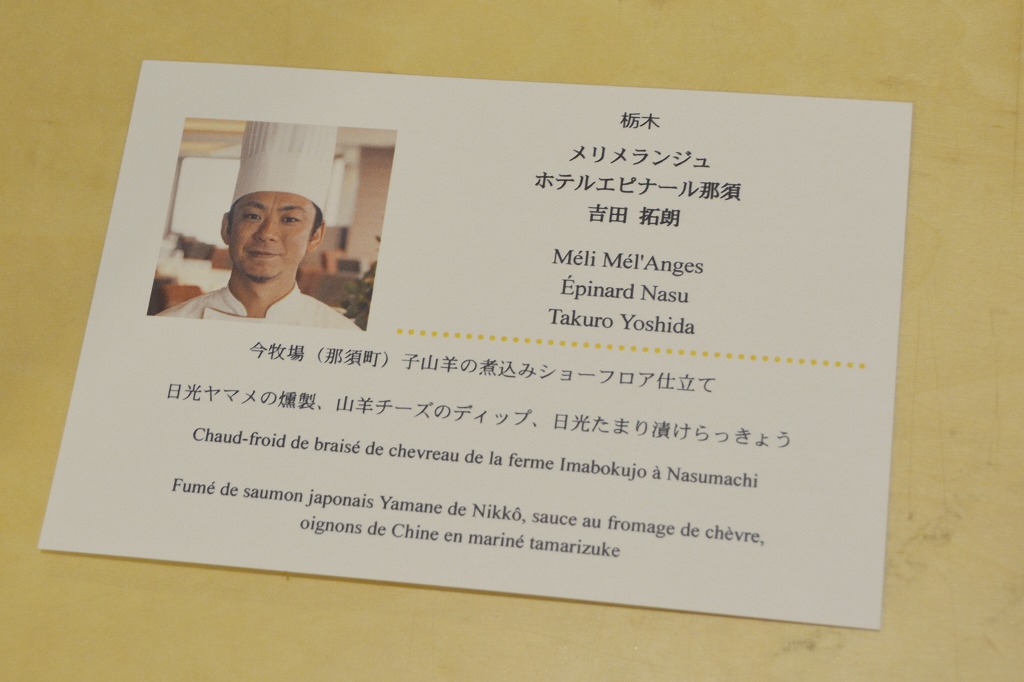 栃木
メリメランジュ
ホテルエピナール那須
吉田 拓朗
Méli Mél'Anges
Épinard Nasu
Takuro Yoshida
今牧場（那須町）子山羊の煮込みショーフロア仕立て
日光ヤマメの燻製、山羊チーズのディップ、日光たまり漬けらっきょう
Chaud-froid de braisé de chevreau de la ferme Imabokujo à Nasumachi
Fumé de saumon japonais Yamane de Nikkô, sauce au fromage de chèvre,
oignons de Chine en mariné tamarizuke